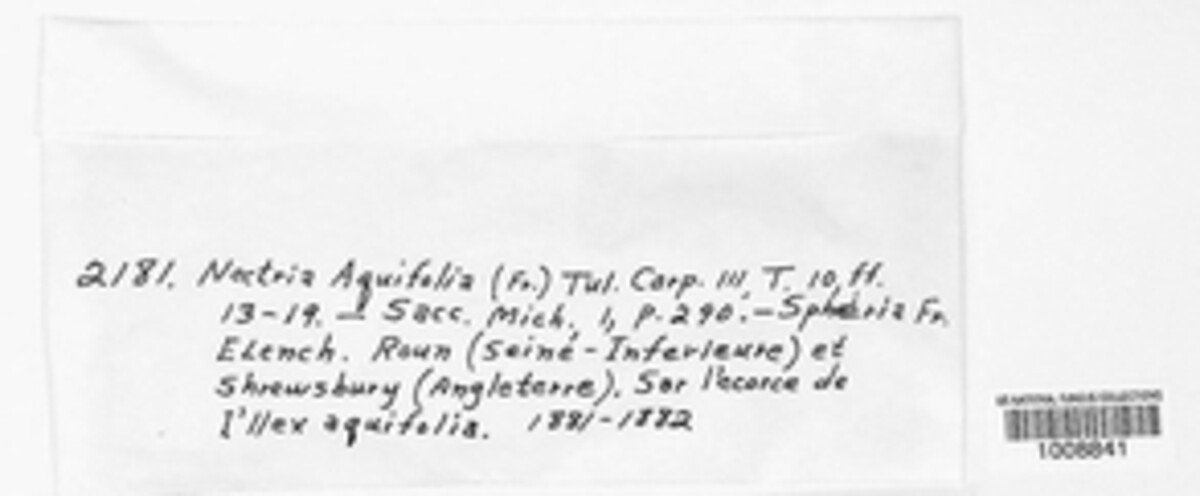 2181. Nectria Aquifolia (Fr.) Tul. Carp. III, T. 10, ff.
13-19. — Sacc. Mich. 1, p. 290. — Sphéria Fr.
Elench. Roun (Seine-Inferieure) et
Shrewsbury (Angleterre). Sor l'ecorce de
l'Ilex aquifolia. 1881-1882
US NATIONAL FUNGUS COLLECTIONS
1008841